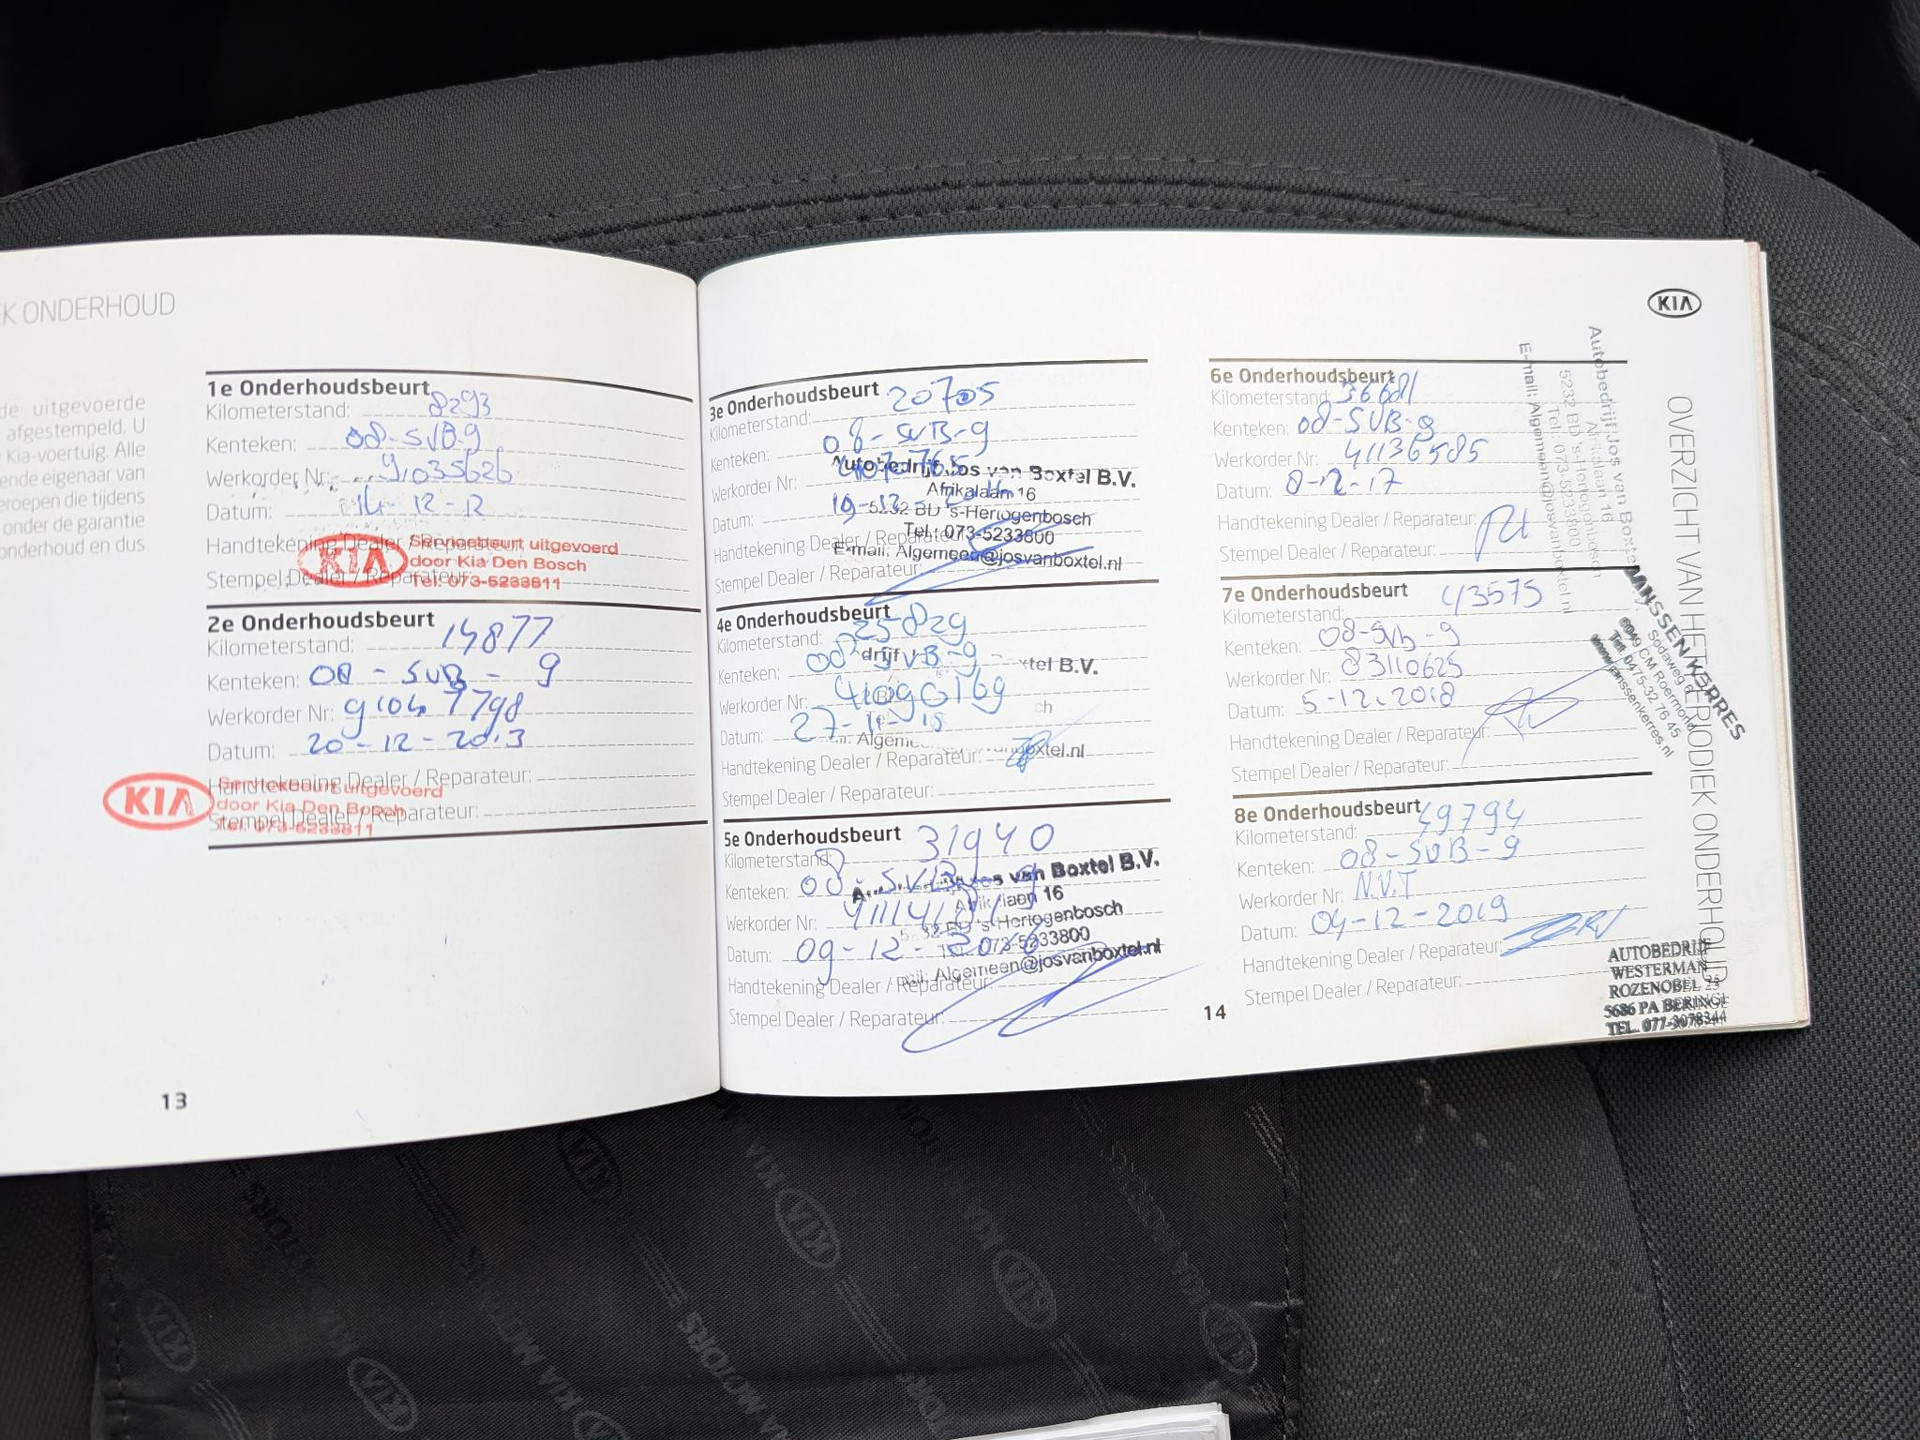 EK ONDERHOUD
de uitgevoerde
afgestempeld. U
Kia-voertuig. Alle
ende eigenaar van
eroepen die tijdens
onder de garantie
onderhoud en dus
1e Onderhoudsbeurt
Kilometerstand: 8293
Kenteken: 08-SVB-9
Werkorder Nr: 91035626
Datum: 14-12-12
Handtekening Dealer / Reparateur:
Stempel Dealer / Reparateur:
KIA
Servicebeurt uitgevoerd
door Kia Den Bosch
Tel: 073-5233811
2e Onderhoudsbeurt
Kilometerstand: 14877
Kenteken: 08-SVB-9
Werkorder Nr: 91047798
Datum: 20-12-2013
Handtekening Dealer / Reparateur:
Stempel Dealer / Reparateur:
KIA
Servicebeurt uitgevoerd
door Kia Den Bosch
Tel: 073-5233811
13
3e Onderhoudsbeurt
Kilometerstand: 20705
Kenteken: 08-SVB-9
Werkorder Nr:
Datum: 19-12-2014
Handtekening Dealer / Reparateur:
Stempel Dealer / Reparateur:
Autobedrijf Jos van Boxtel B.V.
Afrikalaan 16
5232 BD 's-Hertogenbosch
Tel.: 073-5233800
E-mail: Algemeen@josvanboxtel.nl
4e Onderhoudsbeurt
Kilometerstand: 25829
Kenteken: 08-SVB-9
Werkorder Nr: 41090169
Datum: 27-11-15
Handtekening Dealer / Reparateur:
Stempel Dealer / Reparateur:
drijf
xtel B.V.
ch
Algeme
boxtel.nl
5e Onderhoudsbeurt
Kilometerstand: 31940
Kenteken: 08-SVB-9
Werkorder Nr:
Datum: 09-12-2016
Handtekening Dealer / Reparateur:
Stempel Dealer / Reparateur:
os van Boxtel B.V.
Afrikalaan 16
5232 BD 's-Hertogenbosch
Tel.: 073-5233800
mail: Algemeen@josvanboxtel.nl
KIA
6e Onderhoudsbeurt
Kilometerstand: 36681
Kenteken: 08-SVB-9
Werkorder Nr: 41136585
Datum: 8-12-17
Handtekening Dealer / Reparateur:
Stempel Dealer / Reparateur:
Autobedrijf Jos van Boxtel
Afrikalaan 16
5232 BD 's-Hertogenbosch
Tel.: 073-5233800
E-mail: Algemeen@josvanboxtel.nl
7e Onderhoudsbeurt
Kilometerstand: 43575
Kenteken: 08-SVB-9
Werkorder Nr: 83110625
Datum: 5-12-2018
Handtekening Dealer / Reparateur:
Stempel Dealer / Reparateur:
JANSSEN KERRES
Sodaweg 6
6049 CM Roermond
Tel. 0475-32 76 45
www.janssenkerres.nl
8e Onderhoudsbeurt
Kilometerstand: 49794
Kenteken: 08-SVB-9
Werkorder Nr: N.V.T
Datum: 04-12-2019
Handtekening Dealer / Reparateur:
Stempel Dealer / Reparateur:
AUTOBEDRIJF
WESTERMAN
ROZENOBEL 23
5686 PA BERINGE
TEL. 077-3078344
OVERZICHT VAN HET PERIODIEK ONDERHOUD
14
KIA MOTORS